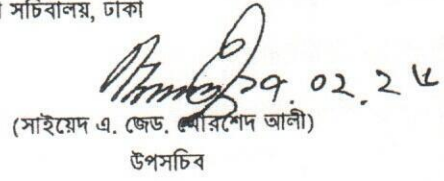 সচিবালয়, ঢাকা
২৭.০২.২৫
(সাইয়েদ এ. জেড. মোরশেদ আলী)
উপসচিব